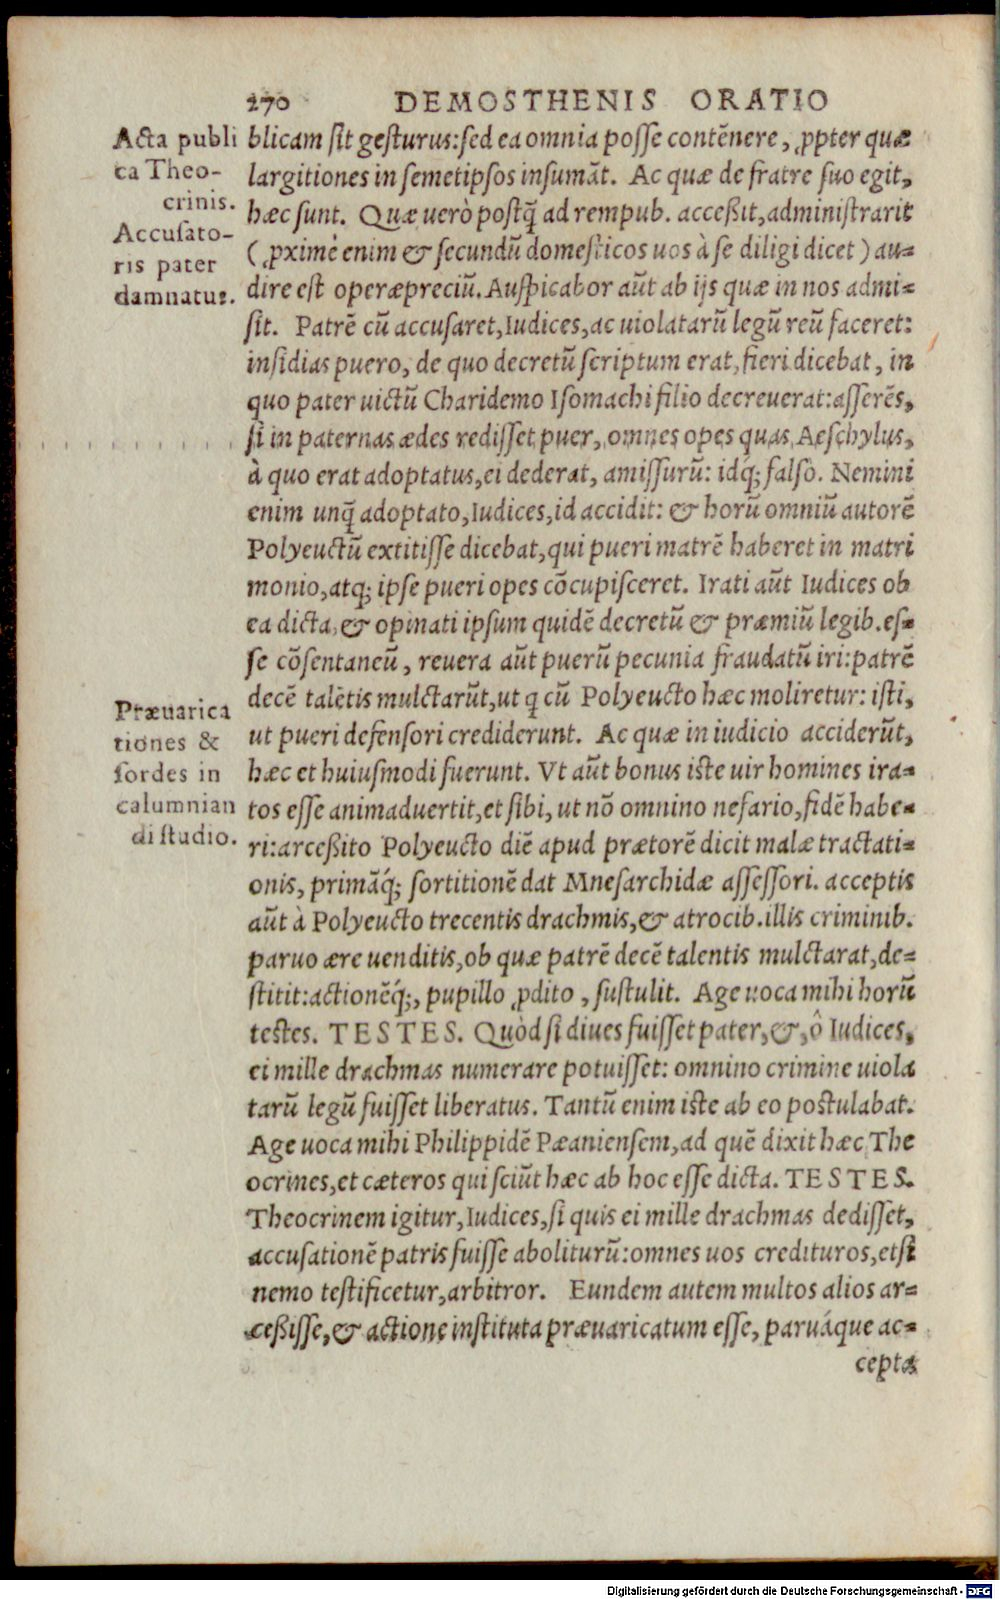 270 DEMOSTHENIS ORATIO
Acta publi
ca Theo-
crinis.
Accusato-
ris pater
damnatus.
blicam sit gesturus: sed ea omnia posse contēnere, ꝓpter quæ
largitiones in semetipsos insumāt. Ac quæ de fratre suo egit,
hæc sunt. Quæ uerò postq̃ ad rempub. acceßit, administrarit
(ꝓximè enim & secundū domesticos uos à se diligi dicet) au-
dire est operæpreciū. Auspicabor aūt ab ijs quæ in nos admi-
sit. Patrē cū accusaret, Iudices, ac uiolatarū legū reū faceret:
insidias puero, de quo decretū scriptum erat, fieri dicebat, in
quo pater uictū Charidemo Isomachi filio decreuerat: asserēs,
si in paternas ædes redisset puer, omnes opes quas Aeschylus,
à quo erat adoptatus, ei dederat, amissurū: idq́; falsò. Nemini
enim unq̃ adoptato, Iudices, id accidit: & horū omniū autorē
Polyeuctū extitisse dicebat, qui pueri matrē haberet in matri
monio, atq; ipse pueri opes cōcupisceret. Irati aūt Iudices ob
ea dicta, & opinati ipsum quidē decretū & præmiū legib. es-
se cōsentaneū, reuera aūt puerū pecunia fraudatū iri: patrē
decē talētis mulctarūt, ut q cū Polyeucto hæc moliretur: isti,
ut pueri defensori crediderunt. Ac quæ in iudicio acciderūt,
hæc et huiusmodi fuerunt. Vt aūt bonus iste uir homines ira-
tos esse animaduertit, et sibi, ut nō omnino nefario, fidē habe-
ri: arceßito Polyeucto diē apud prætorē dicit malæ tractati-
onis, primāq́; sortitionē dat Mnesarchidæ assessori. acceptis
aūt à Polyeucto trecentis drachmis, & atrocib. illis criminib.
paruo ære uenditis, ob quæ patrē decē talentis mulctarat, de-
stitit: actionēq́;, pupillo ꝓdito, sustulit. Age uoca mihi horū
testes. TESTES. Quòd si diues fuisset pater, &, ô Iudices,
ei mille drachmas numerare potuisset: omnino crimine uiola
tarū legū fuisset liberatus. Tantū enim iste ab eo postulabat.
Age uoca mihi Philippidē Pæaniensem, ad quē dixit hæc The
ocrines, et cæteros qui sciūt hæc ab hoc esse dicta. TESTES.
Theocrinem igitur, Iudices, si quis ei mille drachmas dedisset,
accusationē patris fuisse aboliturū: omnes uos credituros, etsi
nemo testificetur, arbitror. Eundem autem multos alios ar-
ceßisse, & actione instituta præuaricatum esse, paruáque ac-
cepta
Præuarica
tiones &
sordes in
calumnian
di studio.
Digitalisierung gefördert durch die Deutsche Forschungsgemeinschaft - DFG